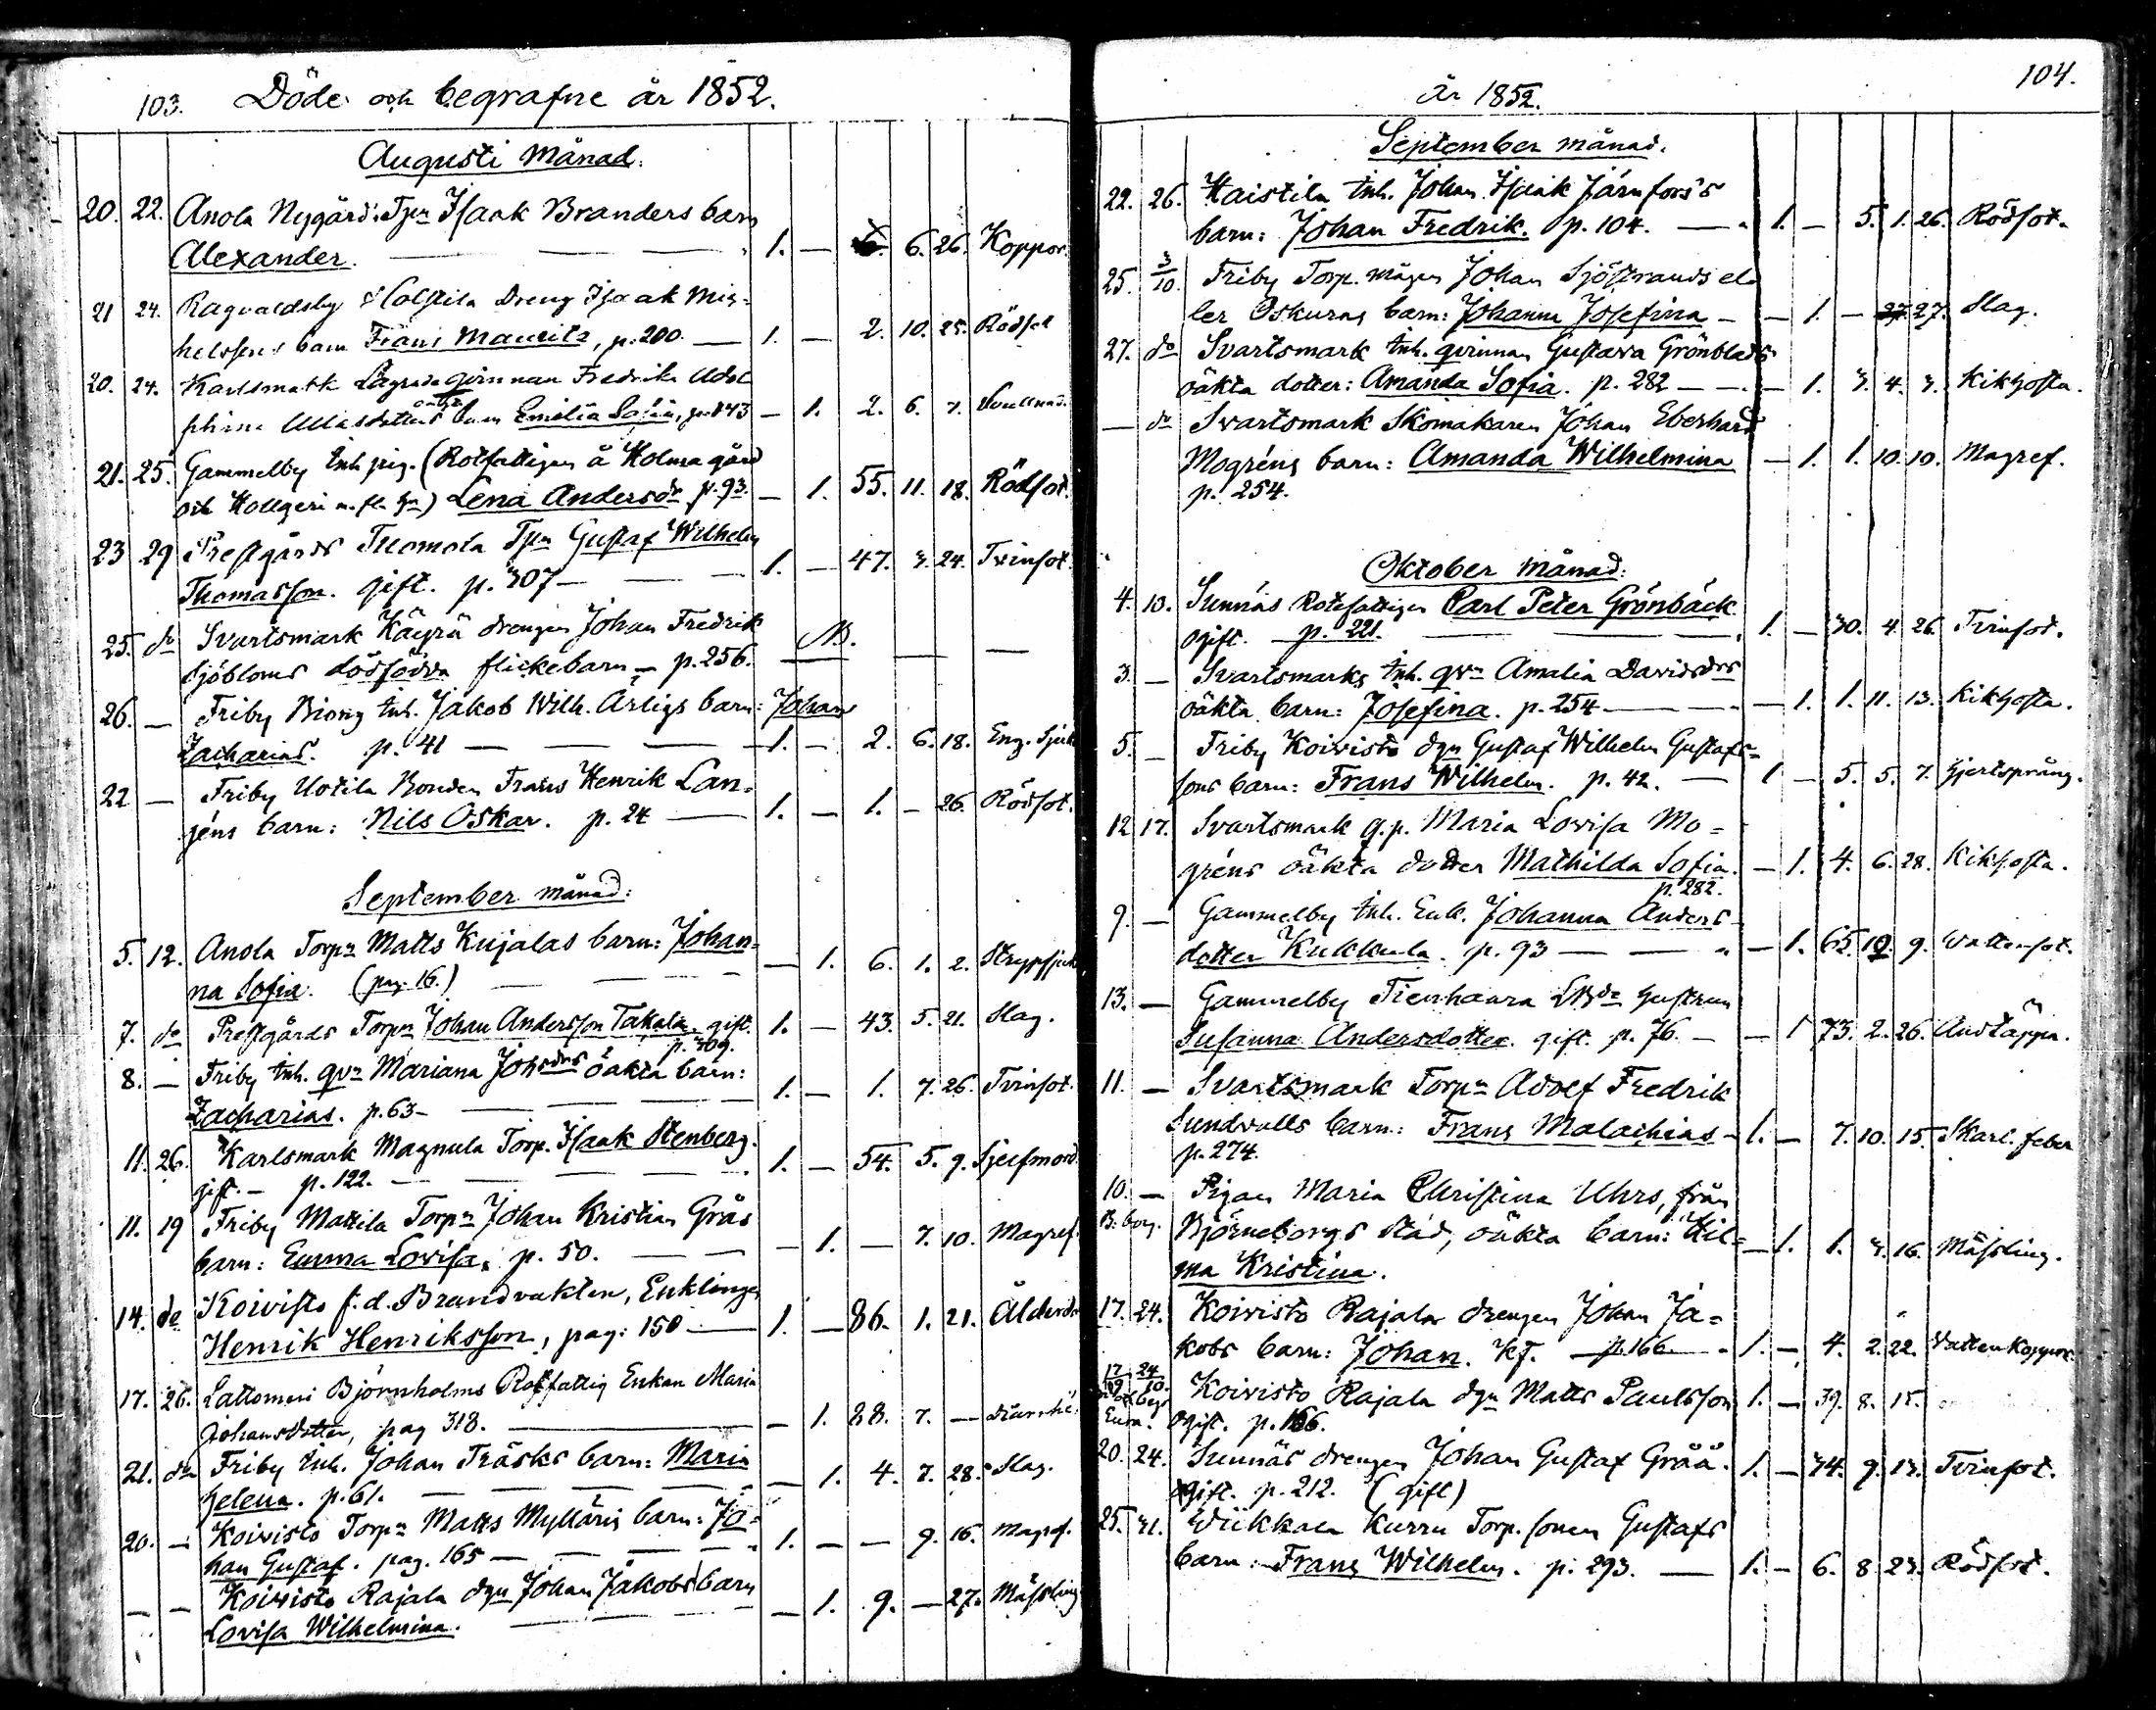 103. Döde och begrafne år 1852.
Augusti Månad.
20. 22. Anola Nygård: Tpr Isaak Branders barn
Alexander. 1. — 6. 26. Koppor.
21 24. Ragvaldsby Dreng Isaak Mic-
helssons barn Frans Mauritz, p. 200. 1. — 2. 10. 25. Rödsot
20. 24. Karlsmark qvinnan Fredrika
barn Emelia Sofia, — 1. 2. 6. 7.
21. 25. Gammelby Inh. pig. (Rotfattigen å Holma gård
och m. fl. ) Lena Andersdr p. 93. — 1. 55. 11. 18. Rödsot.
23 29 Prestgårds Thomola Tpn Gustaf Wilhelm
Thomasson. gift. p. 307 — 1. — 47. 3. 24. Tvinsot.
25. do Svartsmark Käyrä drengen Johan Fredrik
Sjöbloms dödfödda flickebarn — p. 256. —
26. — Friby Inh. Jakob Wilh. Arligs barn: Johan
Zacharias. p. 41 — 1. — 2. 6. 18. Eng. Sjuk
22 — Friby Uotila Bonden Frans Henrik Lan-
géns barn: Nils Oskar. p. 24 — 1. — 1. — 26. Rödsot.
September månad:
5. 12. Anola Torpn Matts Kujalas barn: Johan-
na Sofia. (pag. 16.) — 1. 6. 1. 2. Strypsjuk
7. do Prestgårds Torpn Johan Andersson Takala. gift. 1. — 43. 5. 21. Slag.
p. 309.
8. — Friby Inh. qvn Mariana Johsdrs oäkta barn:
Zacharias. p. 63 — 1. — 1. 7. 26. Tvinsot.
11. 26. Karlsmark Magnula Torp. Isaak Stenberg.
gift. — p. 122. — 1. — 54. 5. 9. Sjelfmord.
11. 19 Friby Mattila Torpn Johan Kristian Grås
barn: Emma Lovisa. p. 50. — 1. — 7. 10. Magref.
14. do Koivisto f.d. Brandvakten, Enklingen
Henrik Henriksson, pag: 150 — 1. — 86. 1. 21. Ålderdo
17. 26. Lattomeri Björnholms Rotfattig Enkan Maria
Johansdotter, pag 318. — 1. 88. 7. —
21. do Friby Inh. Johan Träsks barn: Maria
Helena. p. 61. — 1. 4. 7. 28. Slag.
20. — Koivisto Torpn Matts Mylläris barn: Jo-
han Gustaf. pag. 165 — 1. — — 9. 16. Magref.
— — Koivisto Rajala dgn Johan Jakobs barn
Lovisa Wilhelmina. — 1. 9. — 27. Mässling
år 1852. 104.
September månad.
22. 26. Haistila Inh. Johan Isaak Järnfors's
barn: Johan Fredrik. p. 104. — 1. — 5. 1. 26. Rödsot.
25. 3/10. Friby Torp. mågen Johan Sjöstrands el-
ler Oskuras barn: Johanna Josefina — — 1. — 27. Slag.
27. do Svartsmark Inh. qvinnan Gustava Grönblads
oäkta dotter: Amanda Sofia. p. 282 — — 1. 3. 4. 3. Kikhosta.
— do Svartsmark Skomakaren Johan Eberhard
Mogréns barn: Amanda Wilhelmina — 1. 1. 10. 10. Magref.
p. 254.
Oktober månad:
4. 10. Sunnäs Rotefattigen Carl Peter Grönbäck
ogift. p. 221. 1. — 30. 4. 26. Tvinsot.
3. — Svartsmarks Inh. qvn Amalia Davidsdrs
oäkta barn: Josefina. p. 254 — 1. 1. 11. 13. Kikhosta.
5. — Friby Koivisto dgn Gustaf Wilhelm Gustafs-
sons barn: Frans Wilhelm. p. 42. — 1 — 5. 5. 7. Hjertsprång.
12. 17. Svartsmark q.p. Maria Lovisa Mo-
gréns oäkta dotter Mathilda Sofia. — 1. 4. 6. 28. Kikhosta.
p. 282.
9. — Gammelby Inh. Enk. Johanna Anders-
dotter Kukkula. p. 93 — — 1. 65. 10. 9. Vattensot.
13. — Gammelby Tienhaara hustrun
Susanna Andersdotter. gift. p. 76. — — 1 73. 2. 26. Andtäppa.
11. — Svartsmark Torpn Adolf Fredrik
Sundvalls barn: Frans Malachias — 1. — 7. 10. 15. Skarl. feber
p. 274.
10. — Pigan Maria Christina Uhrs, från
B:borg. Björneborgs stad, oäkta barn: Hil-
ma Kristina. — 1. 1. 3. 16. Mässling.
17. 24. Koivisto Rajala drengen Johan Ja-
kobs barn: Johan. p. 166. 1. — 4. 2. 22. Vattenkoppor.
17 24/10. Koivisto Rajala dgn Matts Paulsson 1. — 39. 8. 15.
Eura. ogift. p. 166.
20. 24. Sunnäs drengen Johan Gustaf Gråå. 1. — 34. 9. 13. Tvinsot.
ogift. p. 212. (gift)
25. 31. Wiikkala Kurru Torp. sonen Gustafs
barn: Frans Wilhelm. p. 293. — 1. — 6. 8. 23. Rödsot.